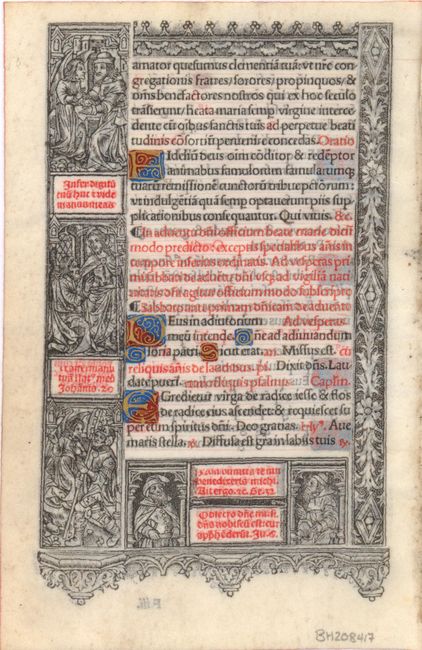 amator quesumus clementiā tuā: vt nr̄e con
gregationis fratres/sorores/propinquos/&
om̄s benefactores nostros qui ex hoc seculo
trāsierūt/beata maria semp virgine interce
dente cū oībus sanctis tuis ad perpetue beati
tudinis cōsortiū peruenire concedas. Oratio
Fidelium deus oīm cōditor & redēptor
animabus famulorum famularumq
tuarū remissionē cunctorū tribue pctorum:
vt indulgētiā quā semp optauerunt piis sup
plicationibus consequantur. Qui viuis. &c.
In aduentu dn̄i officium beate marie dicit
modo predicto: exceptis specialibus
tempore inferius ordinatis. Ad vesperas pri
mi sabbati de aduētu dn̄i vsq ad vigiliā nati
officium modo subscripto
Sabbato ante primam dn̄icam de aduentu
Deus in adiutorium Ad vesperas
meū intende. Dn̄e ad adiuuandum
Gloria patri. Sicut erat. Missus est.
reliquis de laudibus. ps. Dixit dn̄s. Lau
date pueri. psalmus. Capl'm.
Egredietur virga de radice iesse & flos
de radice eius ascendet: & requiescet su
per eum spiritus dn̄i. Deo gratias. Hy. Aue
maris stella. Diffusa est gr̄a in labiis tuis
Infer digitū
tuū huc & vide
manus meas
Johānis. 20
benedixeris michi.
Obsecro dn̄e mi si
dn̄s nobiscū est: cur
BH208417